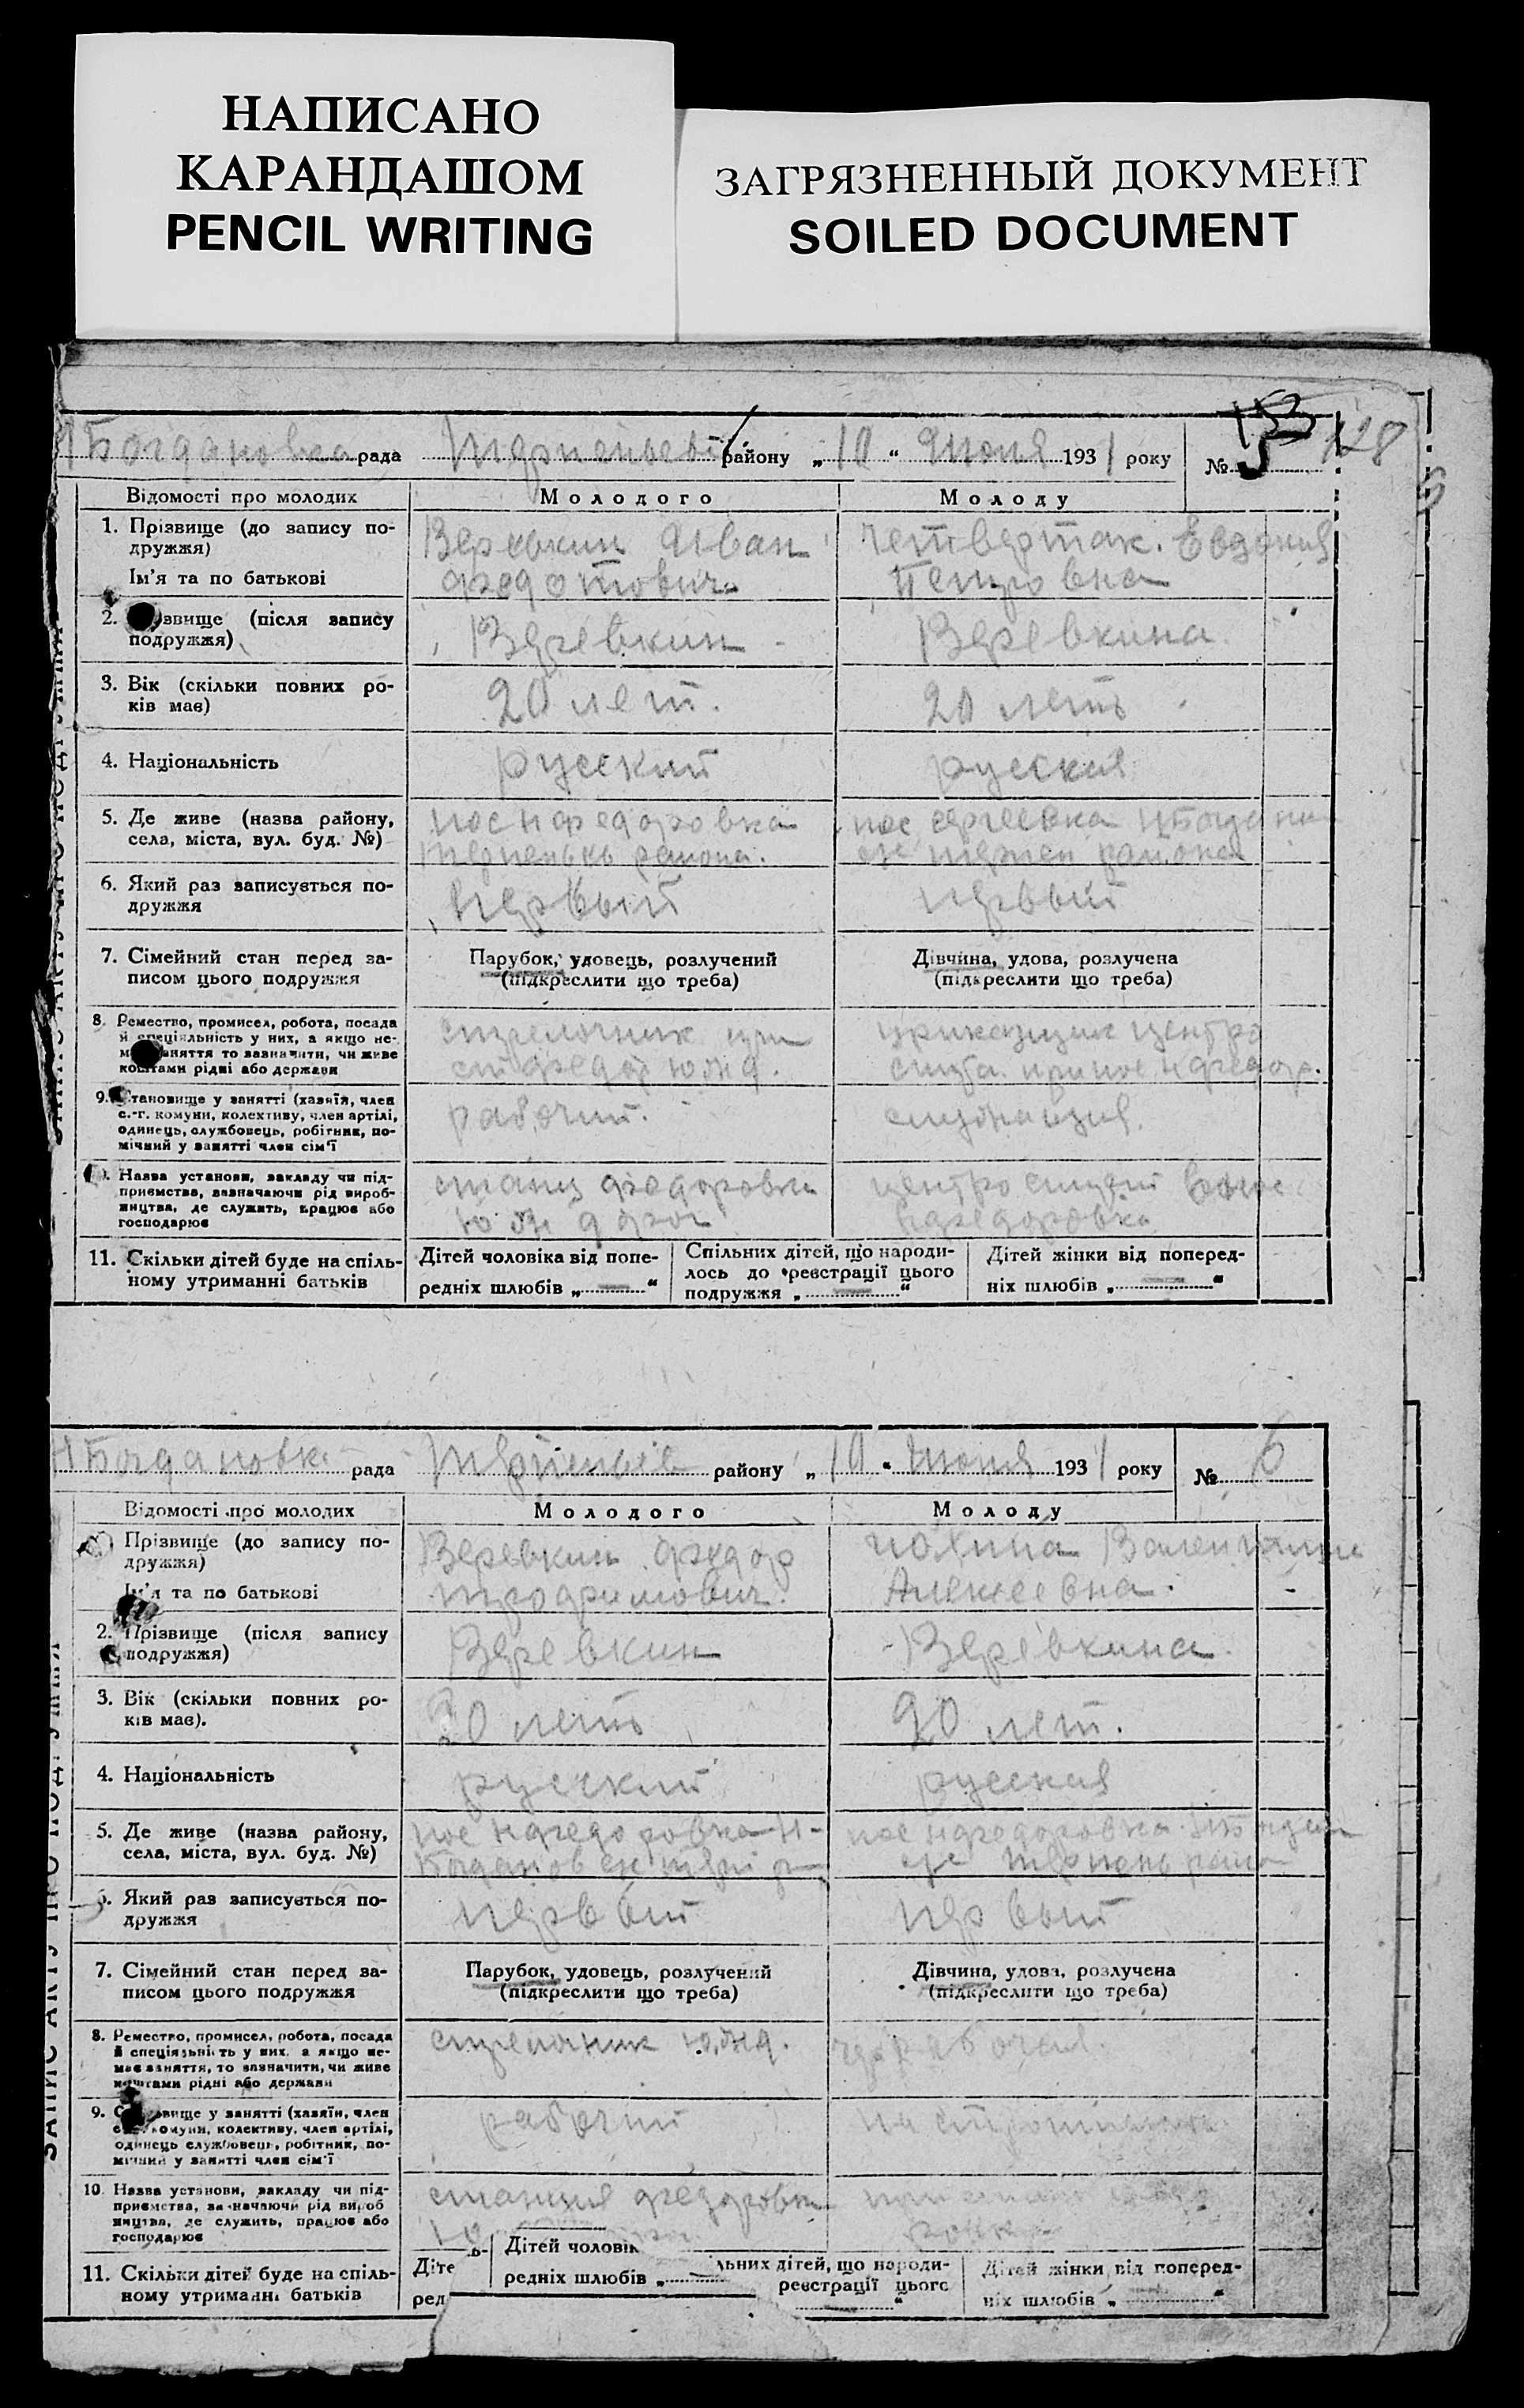 НАПИСАНО
КАРАНДАШОМ
PENCIL WRITING
ЗАГРЯЗНЕННЫЙ ДОКУМЕНТ
SOILED DOCUMENT
153
128
Н Богдановка рада Терпеньев району „10“ Июня 1931 року № 5
Відомості про молодих
Молодого
Молоду
1. Прізвище (до запису по-
дружжя)
Ім'я та по батькові
Веревкин Иван
Федотович
Четвертак. Евдокия
Петровна
2. звище (після запису
подружжя)
Веревкин
Веревкина
3. Вік (скільки повних ро-
ків має)
20 лет.
20 леть
4. Національність
русский
русская
5. Де живе (назва району,
села, міста, вул. буд. №)
пос Н Федоровка
района.
пос Сергеевка НБогданов
района
6. Який раз записується по-
дружжя
первый
первый
7. Сімейний стан перед за-
писом цього подружжя
Парубок, удовець, розлучений
(підкреслити що треба)
Дівчина, удова, розлучена
(підкреслити що треба)
8. Ремество, промисел, робота, посада
й спеціяльність у них, а якщо не-
має заняття то зазначити, чи живе
коштами рідні або держави
стрелочник при
ст Федор ю жд.
приказщик центро
9. Становище у занятті (хазяїн, член
с.-г. комуни, колективу, член артілі,
одинець, службовець, робітник, по-
мічний у занятті член сім'ї
рабочий.
служащия.
10. Назва установи, закладу чи під-
приємства, зазначаючи рід вироб-
ництва, де служить, працює або
господарює
станц Федоровка
ю ж дорог
центро
Н Федоровка
11. Скільки дітей буде на спіль-
ному утриманні батьків
Дітей чоловіка від попе-
редніх шлюбів „ — “
Спільних дітей, що народи-
лось до реєстрації цього
подружжя „ — “
Дітей жінки від поперед-
ніх шлюбів „ — “
Н Богдановка рада Терпеньев району „10“ Июня 1931 року № 6
Відомості про молодих
Молодого
Молоду
Прізвище (до запису по-
дружжя)
Ім'я та по батькові
Веревкин Федор
Трофимович.
Валентина
Алексеевна.
2. Прізвище (після запису
подружжя)
Веревкин
Веревкина
3. Вік (скільки повних ро-
ків має).
20 леть
20 лет.
4. Національність
русский
русская
5. Де живе (назва району,
села, міста, вул. буд. №)
пос Н Федоровка Н-
Богданов
пос Н Федоровка
6. Який раз записується по-
дружжя
первый
первый
7. Сімейний стан перед за-
писом цього подружжя
Парубок, удовець, розлучений
(підкреслити що треба)
Дівчина, удова, розлучена
(підкреслити що треба)
8. Ремество, промисел, робота, посада
й спеціяльність у них, а якщо не-
має заняття, то зазначити, чи живе
коштами рідні або держави
стрелочник ю.жд.
9. Становище у занятті (хазяїн, член
комуни, колективу, член артілі,
одинець службовець, робітник, по-
мічний у занятті член сім'ї
рабочий
10. Назва установи, закладу чи під-
приємства, зазначаючи рід вироб
ництва, де служить, працює або
господарює
станция Федоровка
11. Скільки дітей буде на спіль-
ному утриманні батьків
Діте
ред
Дітей чоловік
редніх шлюбів „
льних дітей, що народи-
реєстрації цього
“
Дітей жінки від поперед-
ніх шлюбів „ “